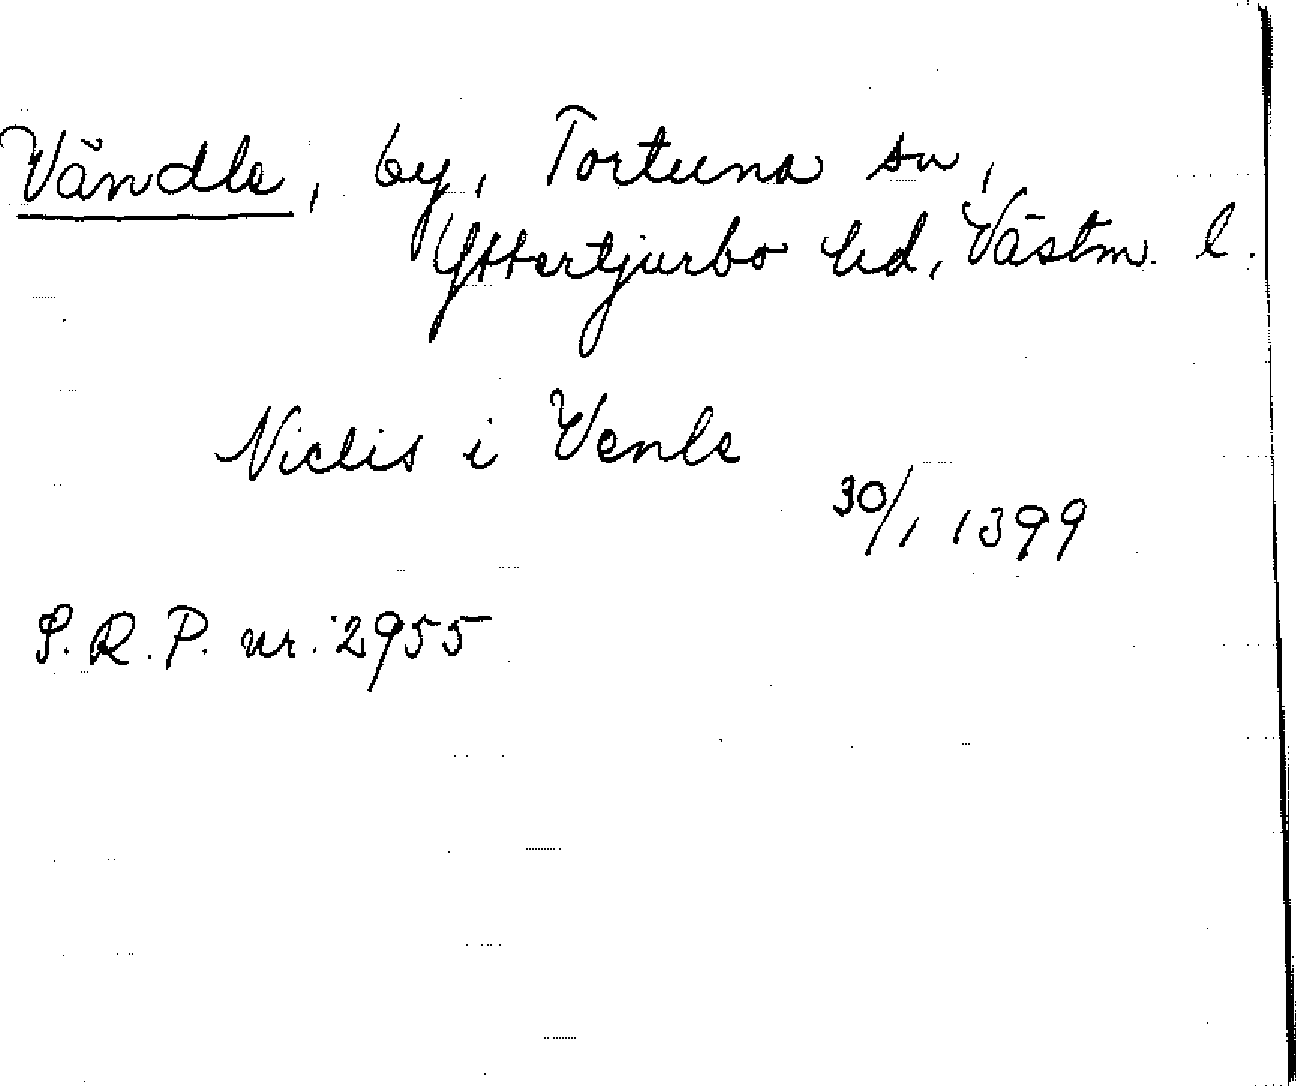 Vändle, by, Tortuna sn,
Yttertjurbo hd, Västm. l.
Niclis i Venle
30/1 1399
S.R.P. nr. 2955